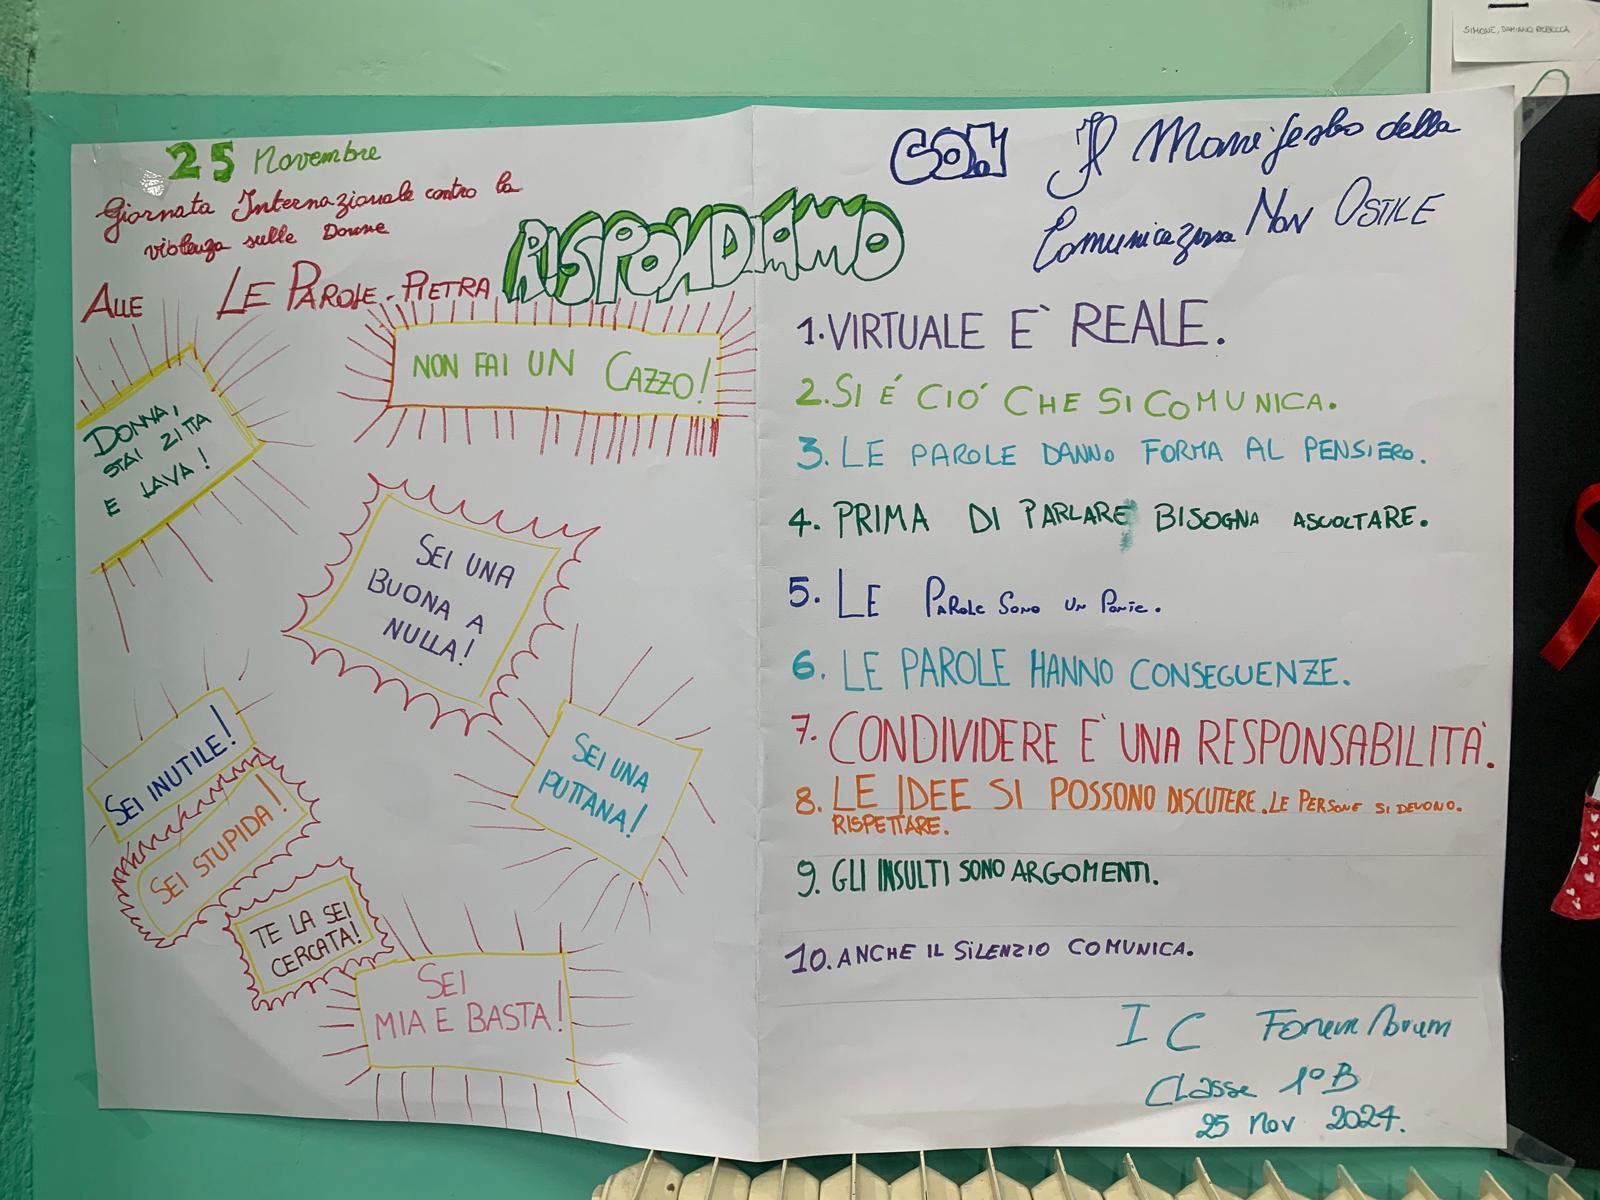 SIMONE, DAMIANO REBECCA
25 Novembre
Giornata Internazionale contro la
violenza sulle Donne
ALLE LE PAROLE-PIETRA
RISPONDIAMO
CON Il Manifesto della
Comunicazione NON OSTILE
NON FAI UN CAZZO!
DONNA,
STAI ZITTA
E LAVA!
SEI UNA
BUONA A
NULLA!
SEI INUTILE!
SEI STUPIDA!
SEI UNA
PUTTANA!
TE LA SEI
CERCATA!
SEI
MIA E BASTA!
1. VIRTUALE E` REALE.
2. SI É CIÓ CHE SI COMUNICA.
3. LE PAROLE DANNO FORMA AL PENSIERO.
4. PRIMA DI PARLARE BISOGNA ASCOLTARE.
5. LE PAROLE SONO UN PONTE.
6. LE PAROLE HANNO CONSEGUENZE.
7. CONDIVIDERE E` UNA RESPONSABILITÀ.
8. LE IDEE SI POSSONO DISCUTERE. LE PERSONE SI DEVONO.
RISPETTARE.
9. GLI INSULTI SONO ARGOMENTI.
10. ANCHE IL SILENZIO COMUNICA.
I C Forum Novum
Classe 1º B
25 Nov 2024.